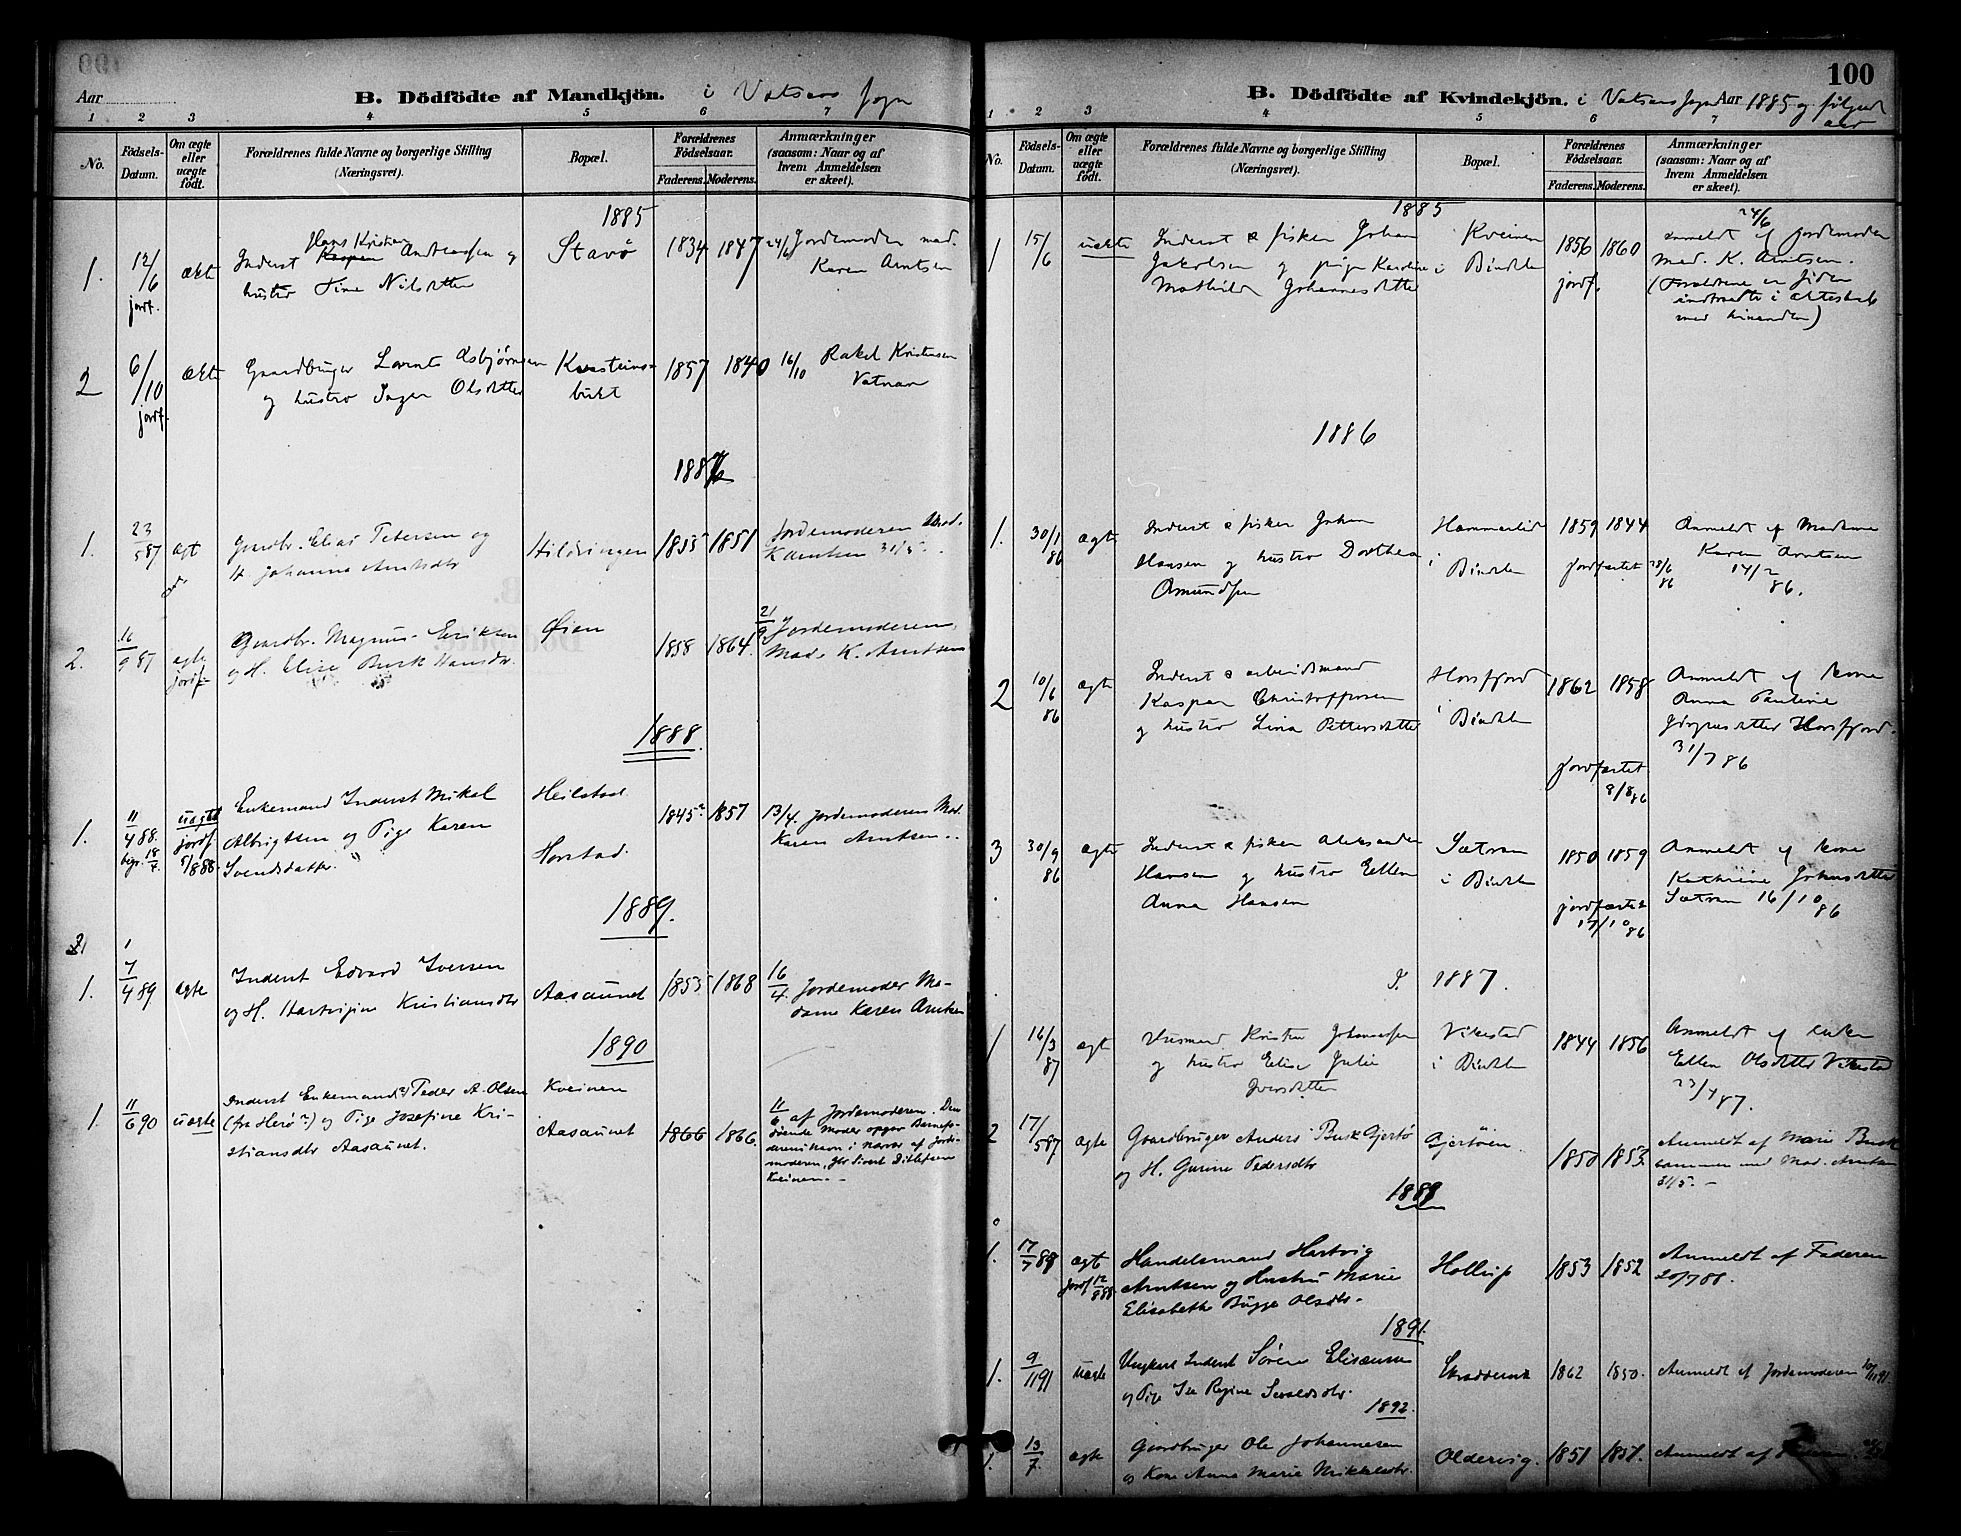 Aar
B. Dödfödte af Mandkjön. i Vatsaas Sogn
1 2 3 4 5 6 7
No.
Födsels-Datum.
Om ægte eller uægte födt.
Forældrenes fulde Navne og borgerlige Stilling (Næringsvei).
Bopæl.
Forældrenes Födselsaar.
Faderens. Moderens.
Anmærkninger (saasom: Naar og af hvem Anmeldelsen er skeet).
1885
1. 12/6 jordf. ækte
Inderst Hans Kristian Andreassen og
hustro Sine Nilsdtter
Stavö 1834 1847
24/6 Jordemoder mad.
Karen Arntsen
2 6/10 jordf. ækte
Gaardbruger Lorents Asbjørnsen
og hustro Inger Olsdtter
bukt 1857 1840
16/10 Rakel Kristensen
Vatnan
1887
1. 23/5 87 ægt
Gaardbr. Elias Petersen og
H. Johanna Arntsdtr
Hildringen 1855 1851
Jordemoderen Mad.
K Arntsen 31/5.
2. 16/9 87 ægte jordf.
Gaardbr. Magnus Eriksen
og H. Elise Busk Hansdtr.
Øien 1858 1864.
21/9 Jordemoderen,
Mad. K. Arntsen
1888.
1. 11/4 88. begr. 18/4. uægte jordf 5/8 88.
Enkemand Inderst Mikal
Albrigtsen og Pige Karen
Svendsdatter
Heilstad
Horstad.
1845? 1857
13/4. Jordemoderen Mad.
Karen Arntsen..
1889.
1. 7/4 89 ægte
Inderst Edvard Iversen
og H. Hartvigine Kristiansdtr
Aasaunet 1853 1868
16/4. Jordemoder Ma-
dame Karen Arntsen
1890
1. 11/6 90 uægte
Inderst Enkemand (?) Peder A. Olsen
(fra Herø?) og Pige Josefine Kri-
stiansdtr Aasaunet.
Kveinen
Aasaunet
1866 1866
11/6 af Jordemoderen. Den
døende Moder opgav Barnefa-
derens Navn i Nærvær af Jorde-
moderen, Gbr Sivert Ditlefsen
Kveinen.-
100
B. Dödfödte af Kvindekjön. i Vatsaas Sogn Aar 1885 og følgend aar
1 2 3 4 5 6 7
No.
Födsels-Datum.
Om ægte eller uægte födt.
Forældrenes fulde Navne og borgerlige Stilling (Næringsvei).
Bopæl.
Forældrenes Födselsaar.
Faderens. Moderens.
Anmærkninger (saasom: Naar og af hvem Anmeldelsen er skeet).
1885
1 15/6 uækte
Inderst & fisker Johan
Jakobsen og pige Karoline
Mathilde Johannesdtter
Kveinen
i Bindalen
1856 1860
jordf.
24/6
anmeldt af jordemoder
mad. K. Arntsen.
(Forældrene er siden
indtraadte i ækteskab
med hinanden)
1886
1. 30/1 86 ægte
Inderst & fisker Johan
Hansen og hustro Dorthea
Amundsen
Hammerlid
i Bindalen
1859 1844
jordfæstet 28/6 86
Anmeldt af Madame
Karen Arntsen
14/2 86.
2 10/6 86 ægte
Inderst & arbeidsmand
Kaspar Christoffersen
og hustro Lina Pettersdtter
Horsfjord
i Bindalen
1862 1858
jordfæstet 8/8 86
Anmeldt af kone
Anna Pauline
Horsfjord.
31/7 86
3 30/9 86 ægte
Inderst & fisker Aleksander
Hansen og hustro Ellen
Anna Hansen
Sætran
i Bindalen
1850 1859
jordfæstet 17/10 86
Anmeldt af kone
Kathrine Johansdtter
Sætran 16/10 86
1887.
1 16/3 87 ægt
Husmand Kristen Johansen
og hustro Elise Julie
Iversdtter
Vikestad
i Bindalen
1844 1856
Anmeldt af enken
Ellen Olsdtter Vikestad
23/4 87.
2 17/5 87 ægte
Gaardbruger Anders Busk Gjertö
og H. Gurine Pedersdtr
Gjertöen.
1850 1853
Anmeldt af Marie Busk
sammen med Mad. Arntsen
31/5.-
1888
1. 17/7 88 ægte jordf 12/8 88.
Handelsmand Hartvig
Arntsen og Hustru Marie
Elisabeth Bugge Olsdtr.
Holtup 1853 1852
Anmeldt af Faderen
20/7 88.
1891.
1. 9/11 91 uægte
Ungkarl Inderst Søren Eliseussen
og Pige Regine
1862 1850.
Anmeldt af Jordemoderen 10/11 91.
1892.
1. 13/7. ægte
Gaardbruger Ole Johannesen
og Kone Anna Marie Mikkelsdtr.
Oldervig. 1851 1851.
Anmeldt af